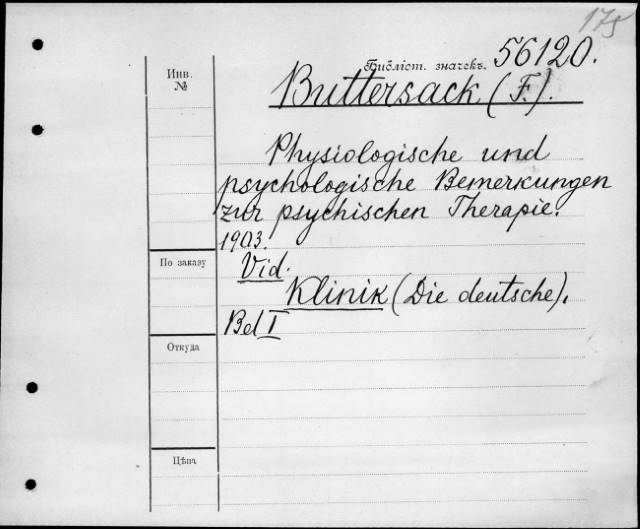 175
Библіот. значекъ. 56120.
Инв.
№
Buttersack (F.).
Physiologische und
psychologische Bemerkungen
zur psychischen Therapie.
1903.
По заказу
Vid.
Klinik (Die deutsche),
Bd I
Откуда
Цѣна